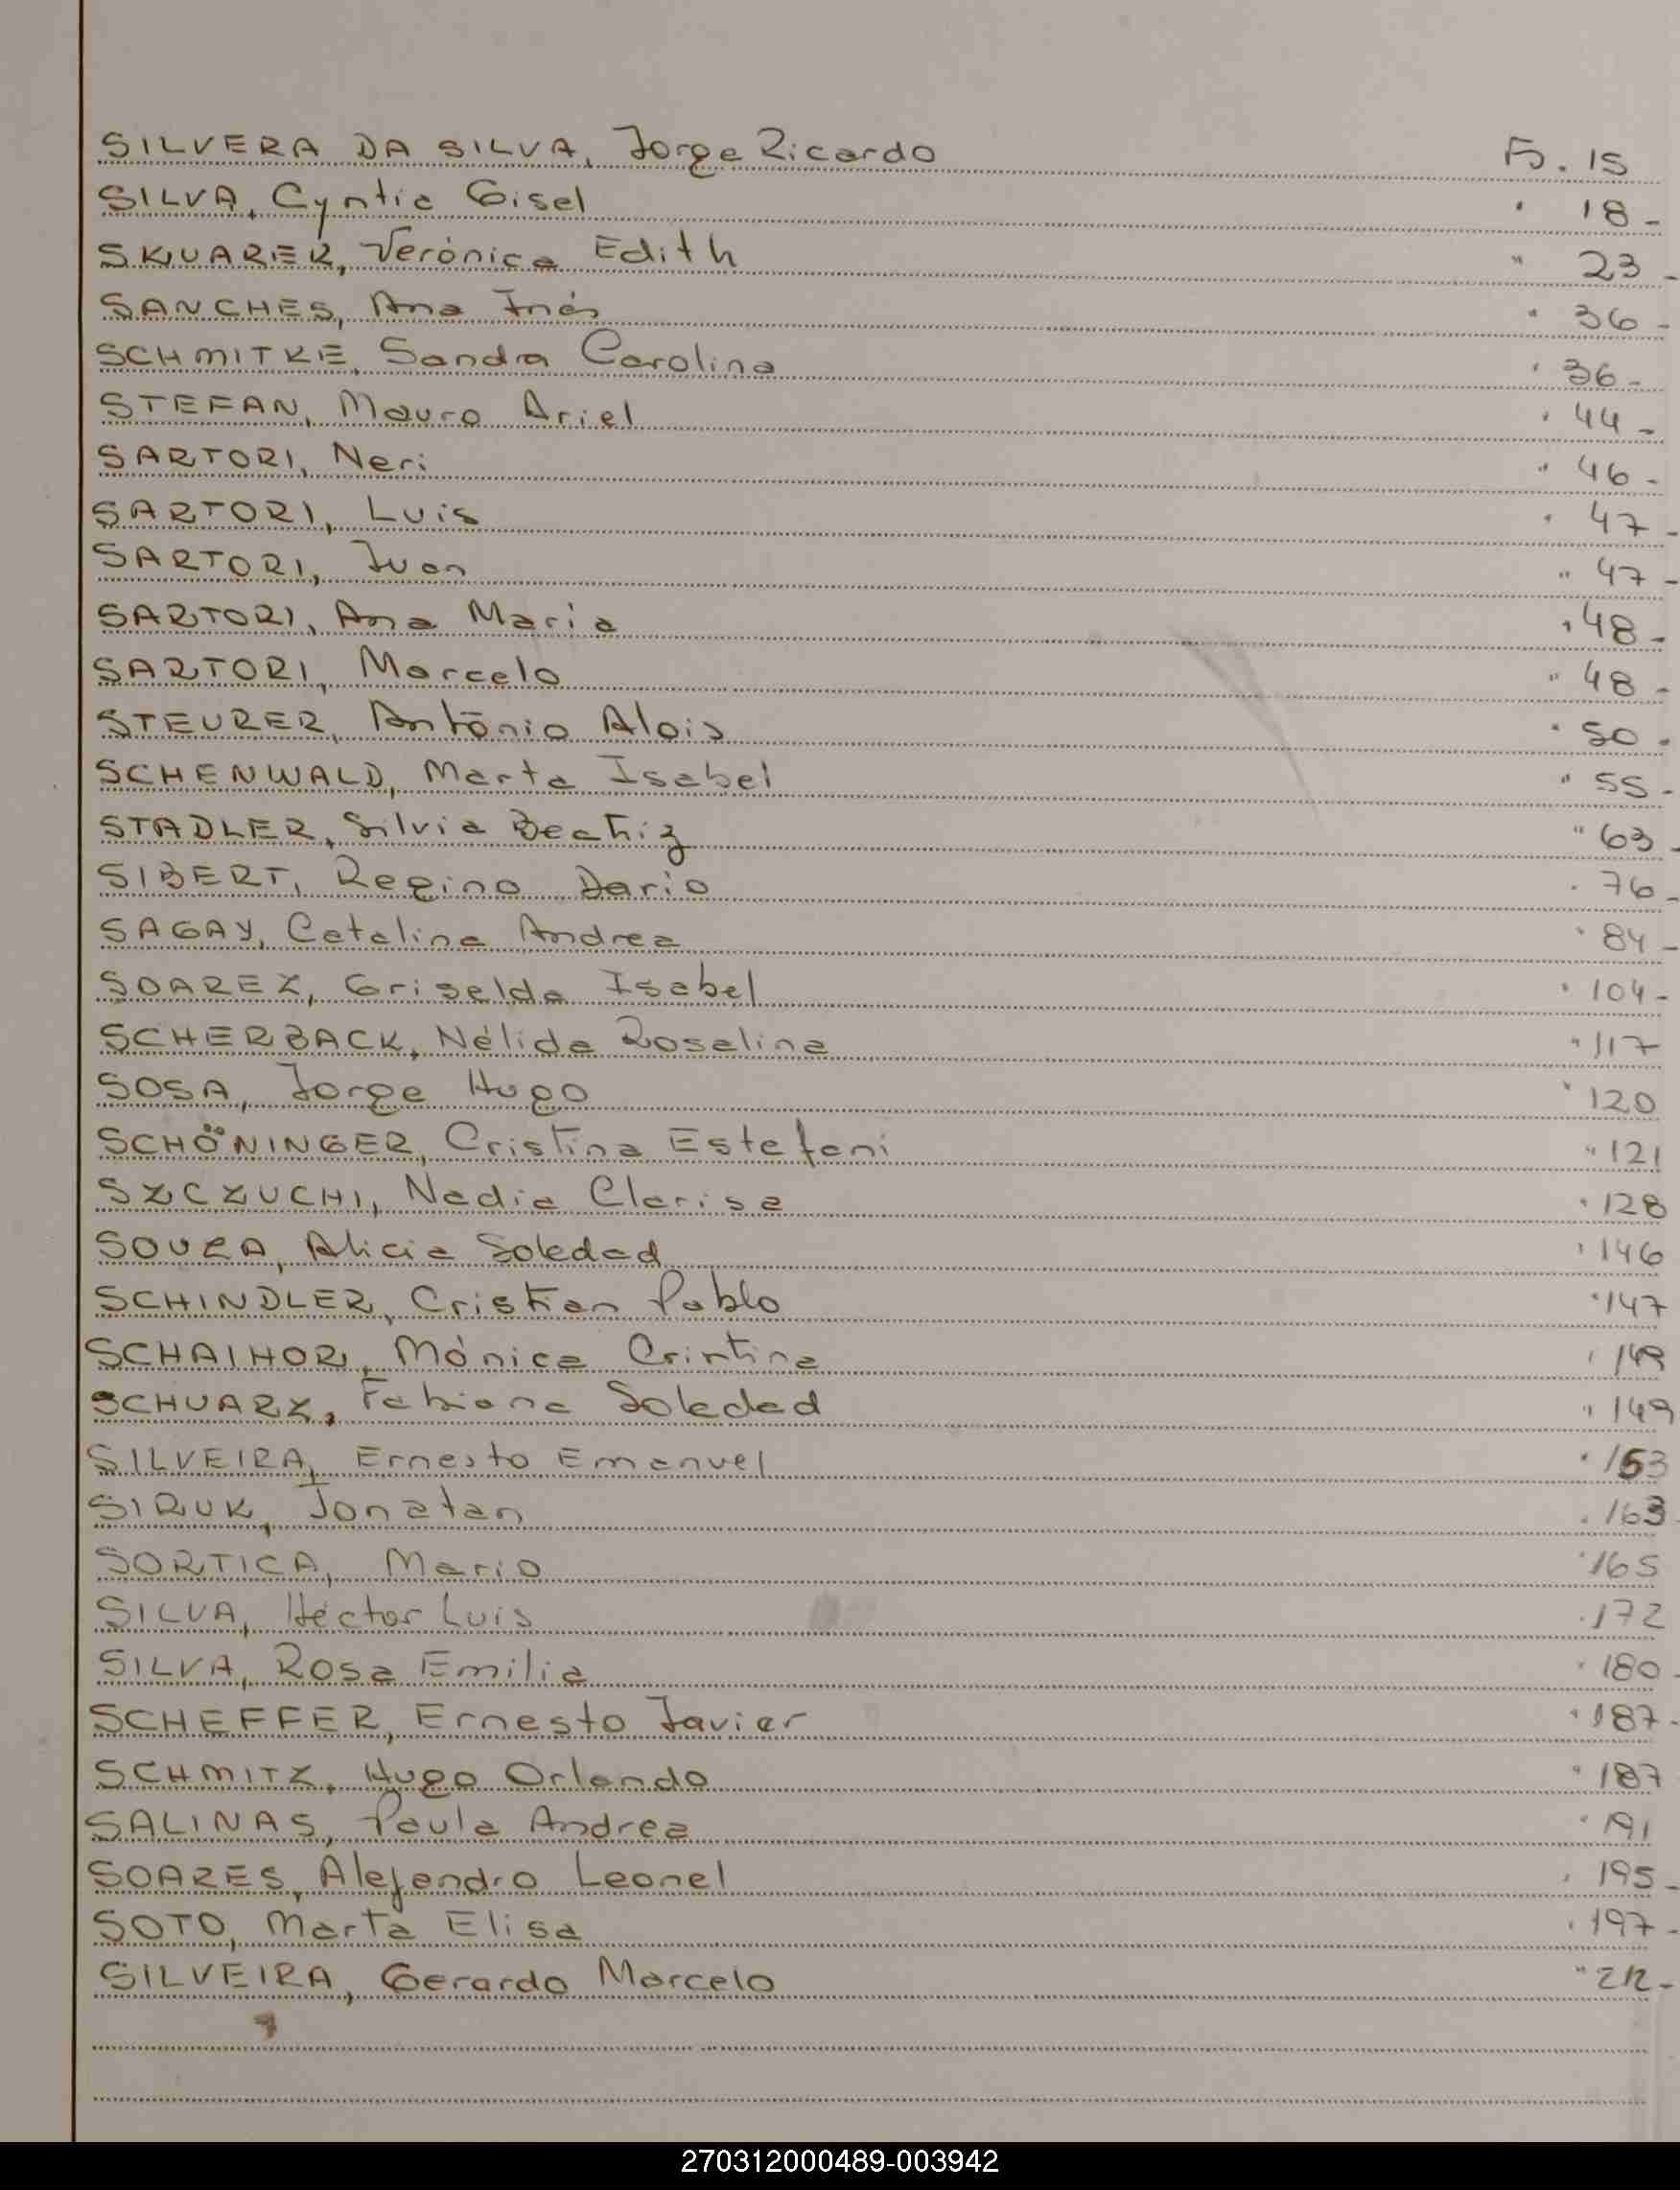 SILVERA DA SILVA, Jorge Ricardo Fo. 15
SILVA, Cyntia Gisel " 18-
SKUARER, Verónica Edith " 23-
SANCHES, Ana Inés " 36-
SCHMITKE, Sandra Carolina " 36-
STEFAN, Mauro Ariel " 44-
SARTORI, Neri " 46-
SARTORI, Luis " 47-
SARTORI, Juan " 47-
SARTORI, Ana Maria " 48-
SARTORI, Marcelo " 48-
STEURER, Antônio Alois " 50-
SCHENWALD, Marta Isabel " 55-
STADLER, Silvia Beatriz " 63-
SIBERT, Regino Dario " 76-
SAGAY, Catalina Andrea " 84-
SOAREZ, Griselda Isabel " 104-
SCHERBACK, Nélida Roselina " 117
SOSA, Jorge Hugo " 120
SCHÖNINGER, Cristina Estefani " 121
SZCZUCHI, Nadia Clarisa " 128
SOUZA, Alicia Soledad " 146
SCHINDLER, Cristian Pablo " 147
SCHAIHOR, Mónica Cristina " 149
SCHUARZ, Fabiana Soledad " 149
SILVEIRA, Ernesto Emanuel " 153
SIRUK, Jonatan " 163
SORTICA, Mario " 165
SILVA, Héctor Luis " 172
SILVA, Rosa Emilia " 180-
SCHEFFER, Ernesto Javier " 187-
SCHMITZ, Hugo Orlando " 187
SALINAS, Paula Andrea " 191
SOARES, Alejandro Leonel " 195-
SOTO, Marta Elisa " 197-
SILVEIRA, Gerardo Marcelo " 212-
270312000489-003942